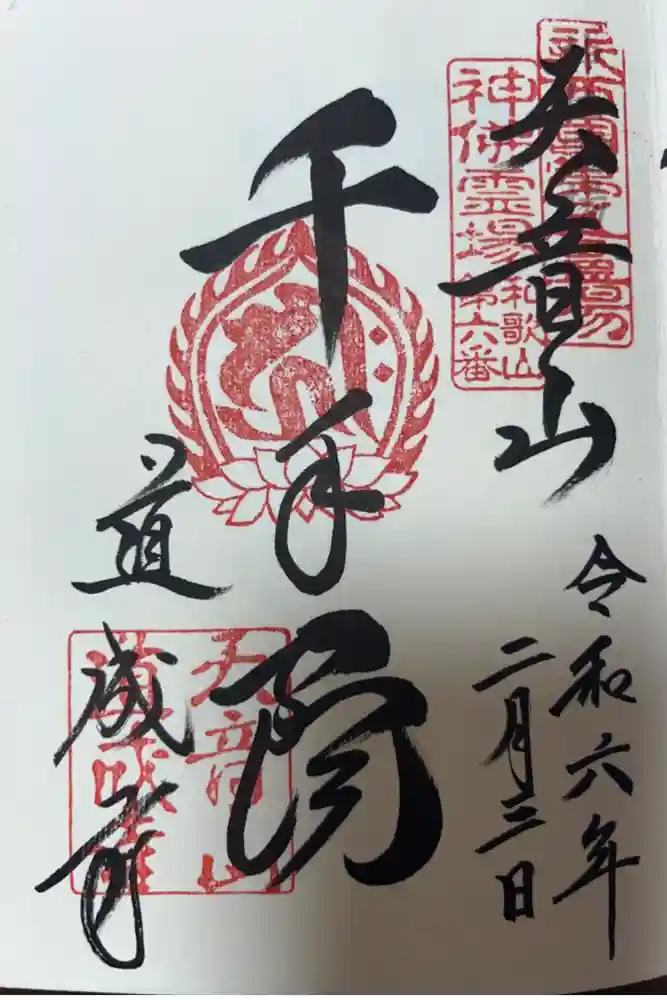 天音山
神佛霊場
和歌山
第六番
令和六年
二月三日
千手閣
道成寺
天音山